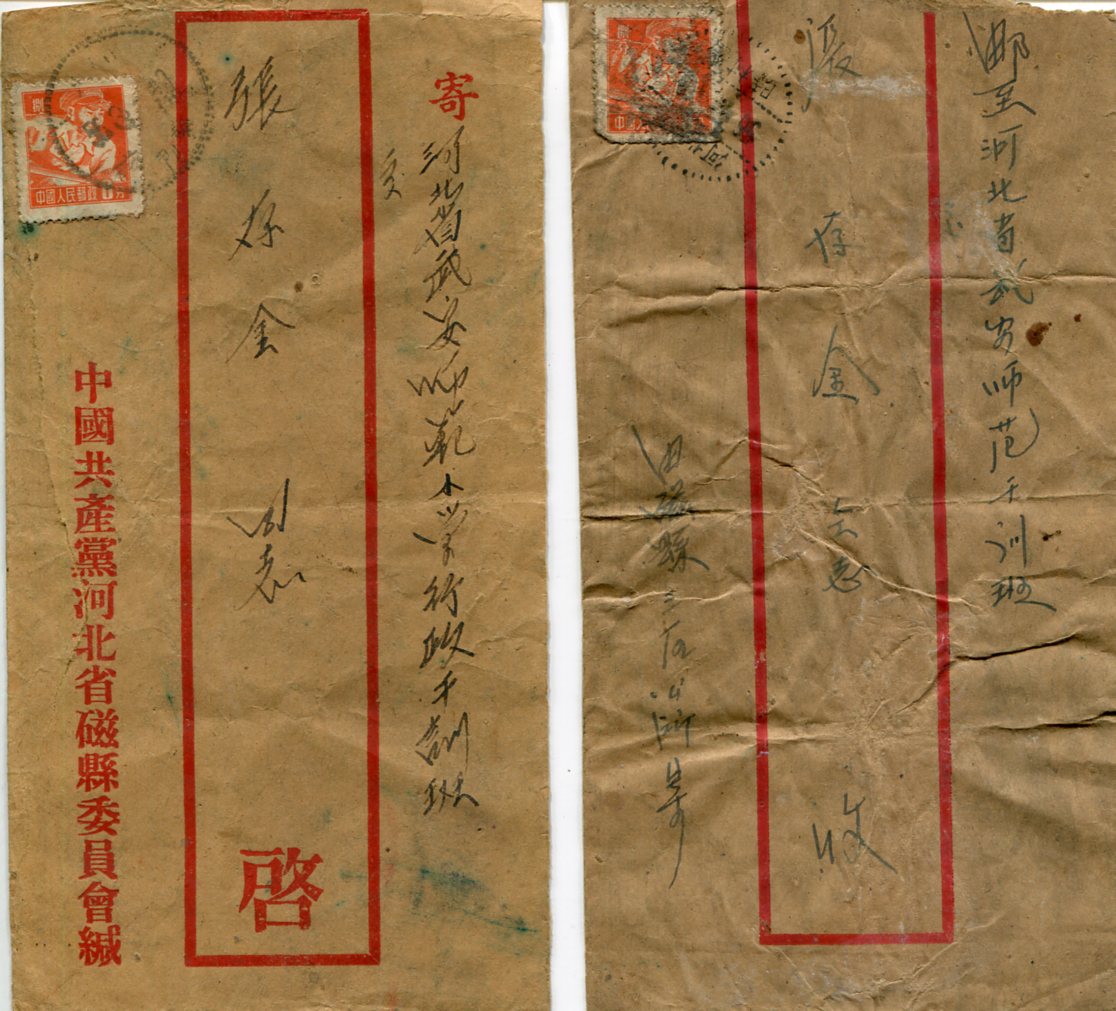 寄
河北省武安师範小学行政干訓班
交
張存金 同志
啓
中國共產黨河北省磁縣委員會緘
中國人民郵政 8分
邮至河北省武安师范干训班
張存金 同志 收
由磁縣
寄
中國人民